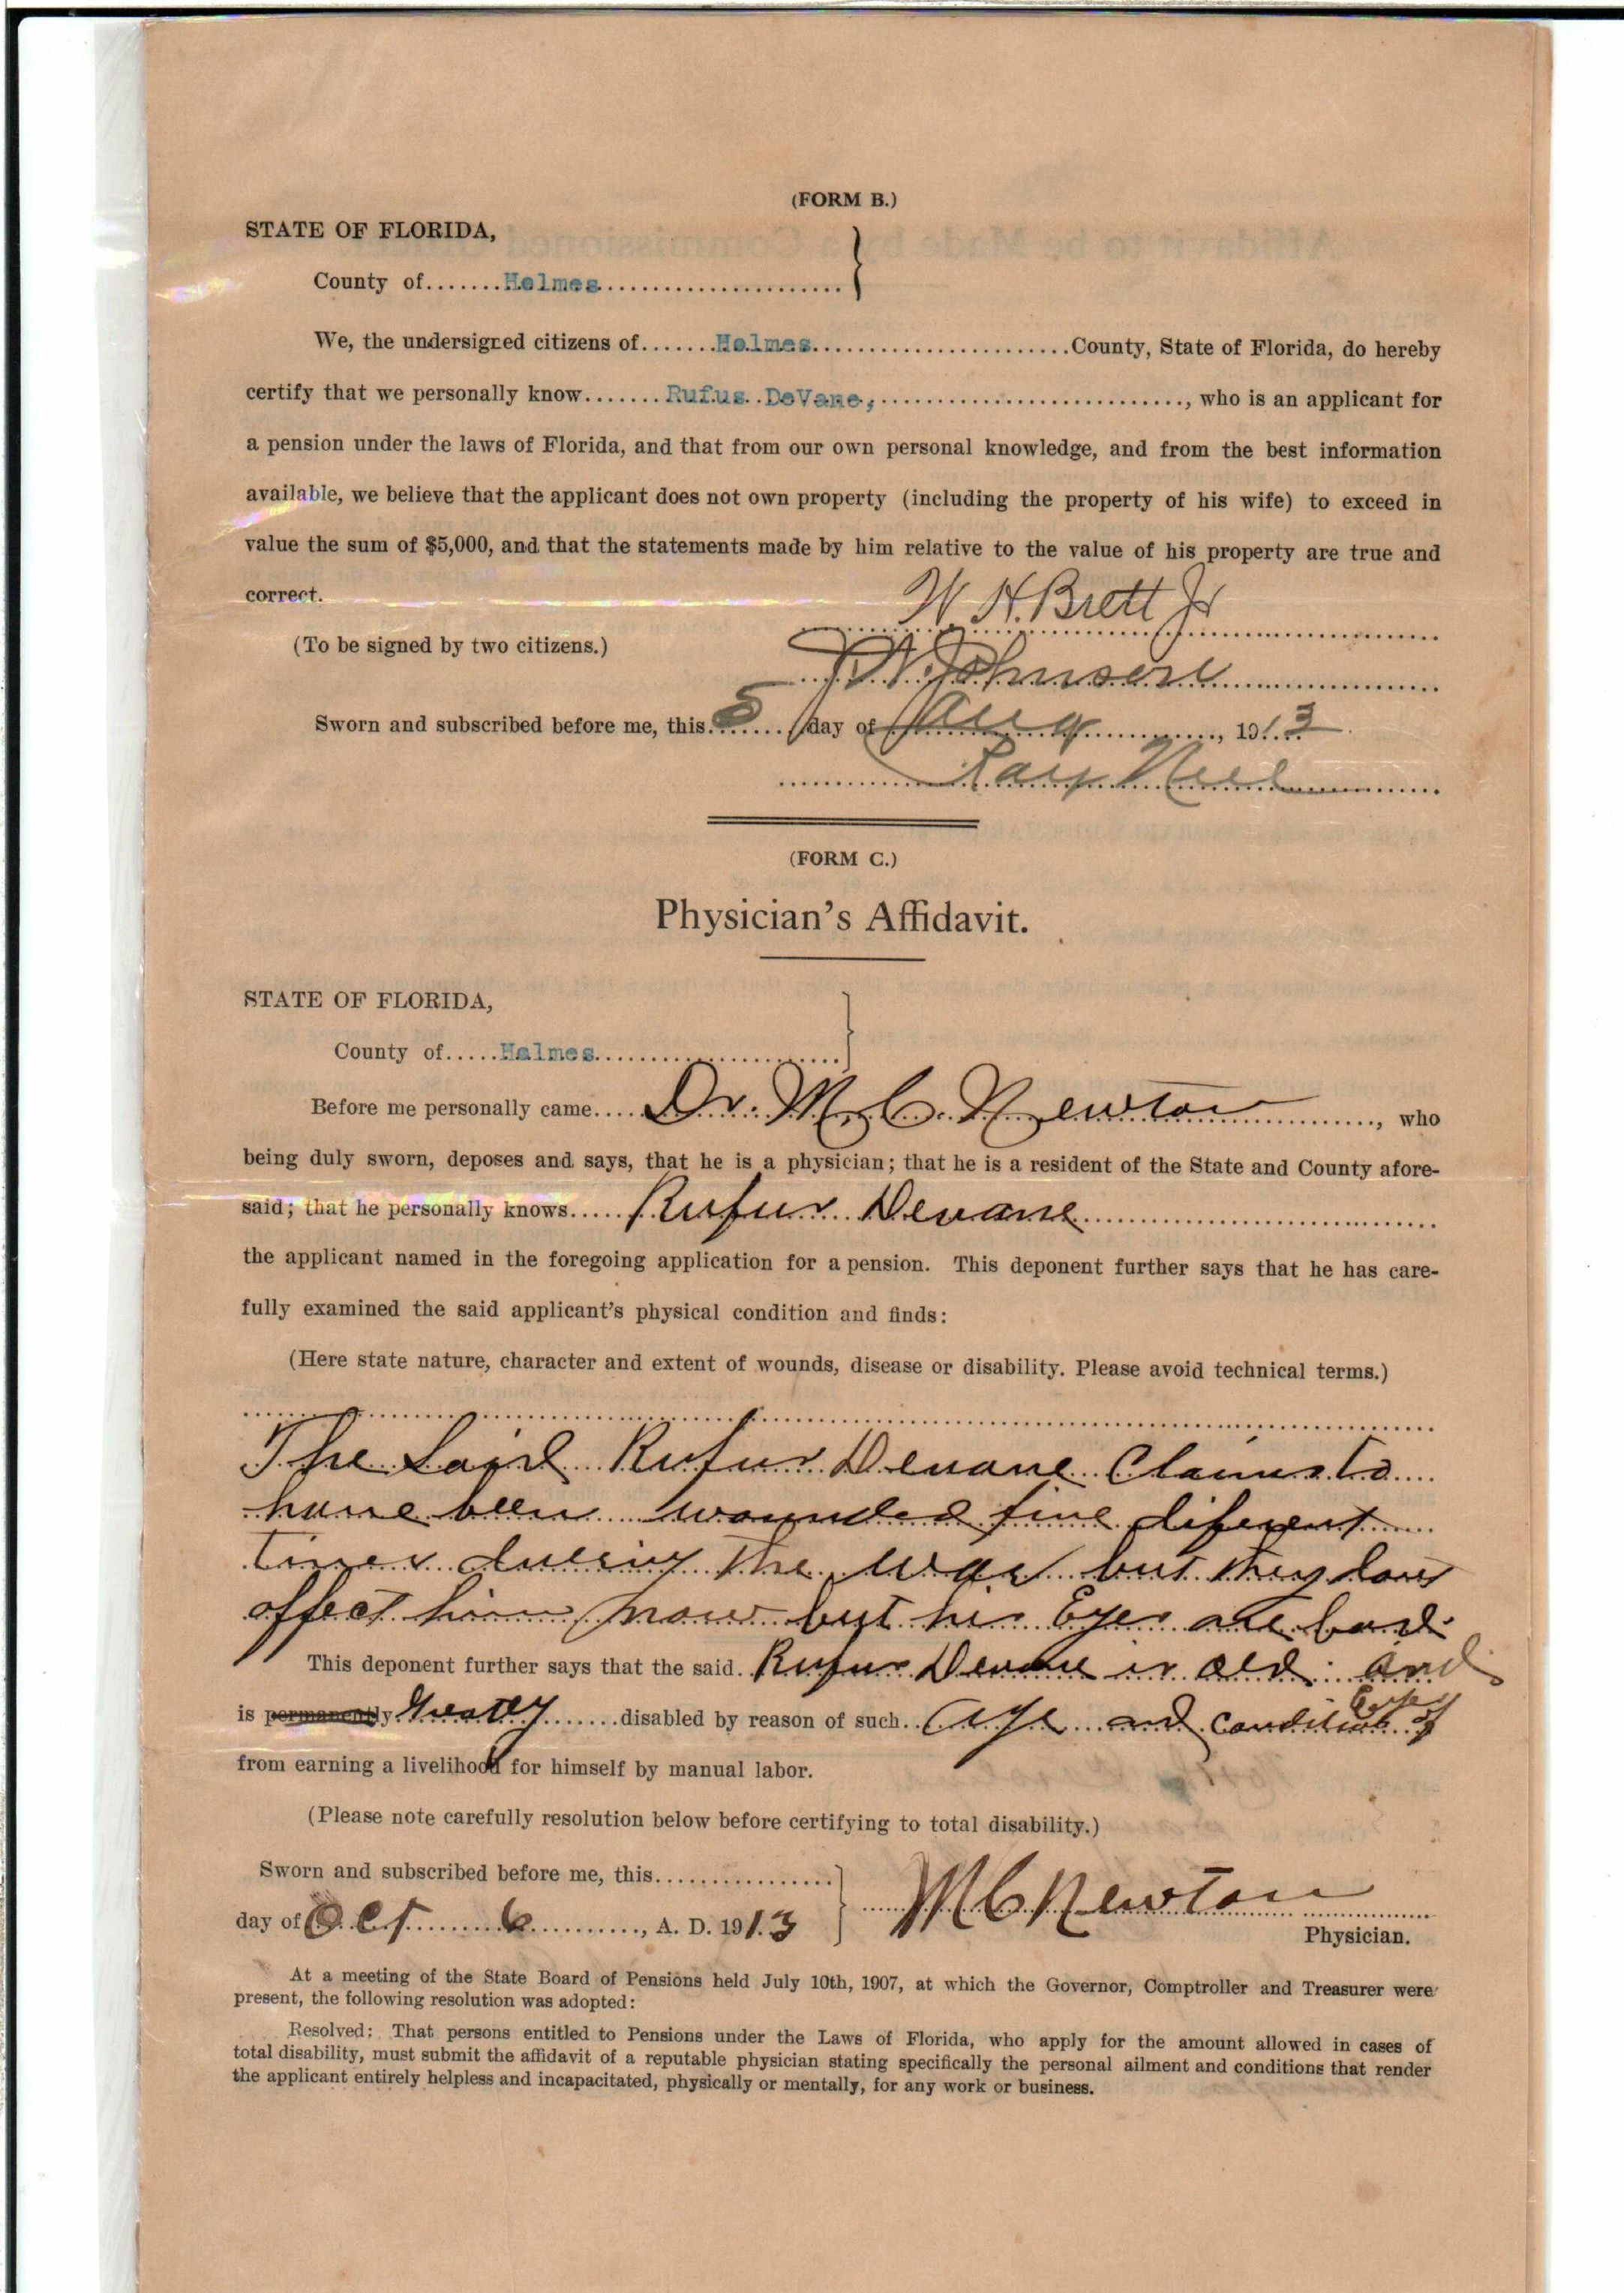 (FORM B.)
STATE OF FLORIDA,
County of.......Holmes......................
We, the undersigned citizens of.......Holmes........................County, State of Florida, do hereby
certify that we personally know.......Rufus DeVane,............................., who is an applicant for
a pension under the laws of Florida, and that from our own personal knowledge, and from the best information
available, we believe that the applicant does not own property (including the property of his wife) to exceed in
value the sum of $5,000, and that the statements made by him relative to the value of his property are true and
correct.
W H. Brett Jr
(To be signed by two citizens.)
Johnson
Sworn and subscribed before me, this 5 day of Aug, 1913
(FORM C.)
Physician's Affidavit.
STATE OF FLORIDA,
County of.....Holmes......................
Before me personally came....Dr. M. C. Newton............, who
being duly sworn, deposes and says, that he is a physician; that he is a resident of the State and County afore-
said; that he personally knows.....Rufus Devane..............................
the applicant named in the foregoing application for a pension. This deponent further says that he has care-
fully examined the said applicant's physical condition and finds:
(Here state nature, character and extent of wounds, disease or disability. Please avoid technical terms.)
The Said Rufus Devane Claims to
have been wounded five diferent
times during the War but they dont
affect him now but his Eyes are bad.
This deponent further says that the said Rufus Devane is old and
is permanently Greatly.......disabled by reason of such..Age and condition of Eyes
from earning a livelihood for himself by manual labor.
(Please note carefully resolution below before certifying to total disability.)
Sworn and subscribed before me, this................
day of Oct 6, A. D. 1913
M C Newton
Physician.
At a meeting of the State Board of Pensions held July 10th, 1907, at which the Governor, Comptroller and Treasurer were
present, the following resolution was adopted:
Resolved: That persons entitled to Pensions under the Laws of Florida, who apply for the amount allowed in cases of
total disability, must submit the affidavit of a reputable physician stating specifically the personal ailment and conditions that render
the applicant entirely helpless and incapacitated, physically or mentally, for any work or business.